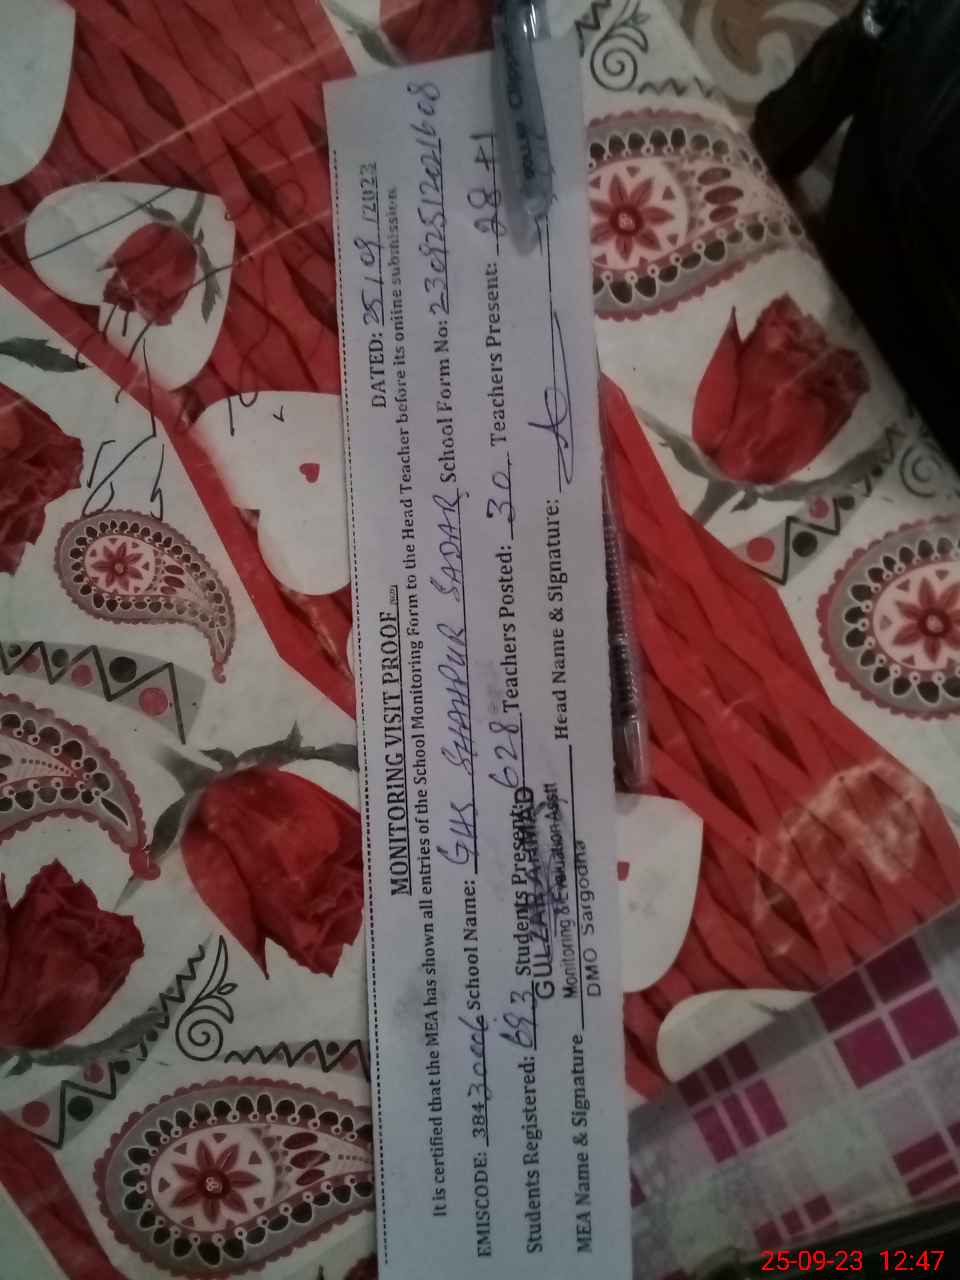 MONITORING VISIT PROOF DATED: 25/09/2023
It is certified that the MEA has shown all entries of the School Monitoring Form to the Head Teacher before its online submission
EMISCODE: 38430006 School Name: GHS SHAHPUR SADAR School Form No:
Students Registered: 693 Students Present: 628 Teachers Posted: 30 Teachers Present: 28+1
GULZAR AHMAD
Monitoring & Evaluation Asstt
MEA Name & Signature Head Name & Signature:
DMO Sargodha
25-09-23 12:47